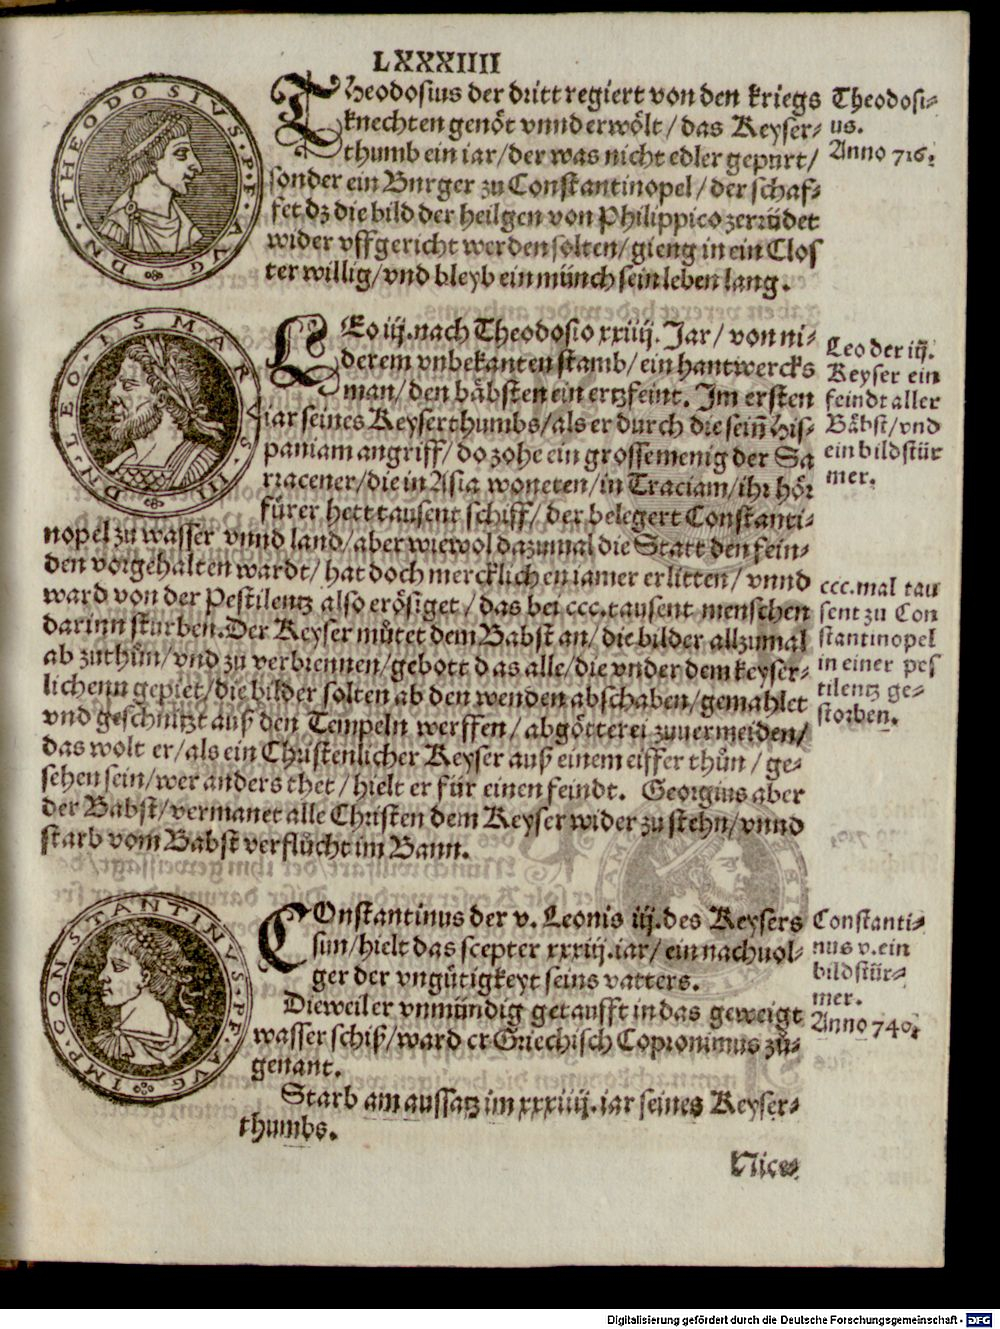 LXXXIIII
DN · THEODOSIVS · P · F · AVG
THeodosius der dritt regiert von den kriegs
knechten genöt vnnd erwölt / das Keyser-
thumb ein iar / der was nicht edler gepurt /
sonder ein Burger zu Constantinopel / der schaf-
fet dz die bild der heilgen von Philippico zerrüdet
wider vffgericht werden solten / gieng in ein Clos
ter willig / vnd bleyb ein münch sein leben lang.
Theodosi-
us.
Anno 716.
DN · LEO · ISMARVS · III
LEo iij. nach Theodosio xxiiij. Jar / von ni-
derem vnbekanten stamb / ein hantwercks
man / den bäbsten ein ertzfeint. Im ersten
iar seines Keyserthumbs / als er durch die sein̄ His-
paniam angriff / do zohe ein grosse menig der Sa
rracener / die in Asia woneten / in Traciam / ihr hör
fürer hett tausent schiff / der belegert Constanti-
nopel zu wasser vnnd land / aber wiewol dazumal die Statt den fein-
den vorgehalten wardt / hat doch mercklichen iamer erlitten / vnnd
ward von der Pestilentz also erösiget / das bei ccc. tausent menschen
darinn sturben. Der Keyser můtet dem Babst an / die bilder allzumal
ab zuthům / vnd zu verbrennen / gebott das alle / die vnder dem keyser-
lichenn gepiet / die bilder solten ab den wenden abschaben / gemahlet
vnd geschnitzt auß den Tempeln werffen / abgötterei zuuermeiden /
das wolt er / als ein Christenlicher Keyser auß einem eiffer thůn / ge-
sehen sein / wer anders thet / hielt er für einen feindt. Georgius aber
der Babst / vermanet alle Christen dem Keyser wider zu stehn / vnnd
starb vom Babst verflůcht im Bann.
Leo der iij.
Keyser ein
feindt aller
Bäbst / vnd
ein bildstür
mer.
ccc. mal tau
sent zu Con
stantinopel
in einer pes
tilentz ge-
storben.
IMP · CONSTANTINVS · P F · AVG
COnstantinus der v. Leonis iij. des Keysers
sun / hielt das scepter xxxiij. iar / ein nachuol-
ger der vngütigkeyt seins vatters.
Dieweil er vnmündig getaufft in das geweigt
wasser schiß / ward er Griechisch Copronimus zů-
genant.
Starb am aussatz im xxxiiij. iar seines Keyser-
thumbs.
Constanti-
nus v. ein
bildstür-
mer.
Anno 740.
Nice-
Digitalisierung gefördert durch die Deutsche Forschungsgemeinschaft - DFG